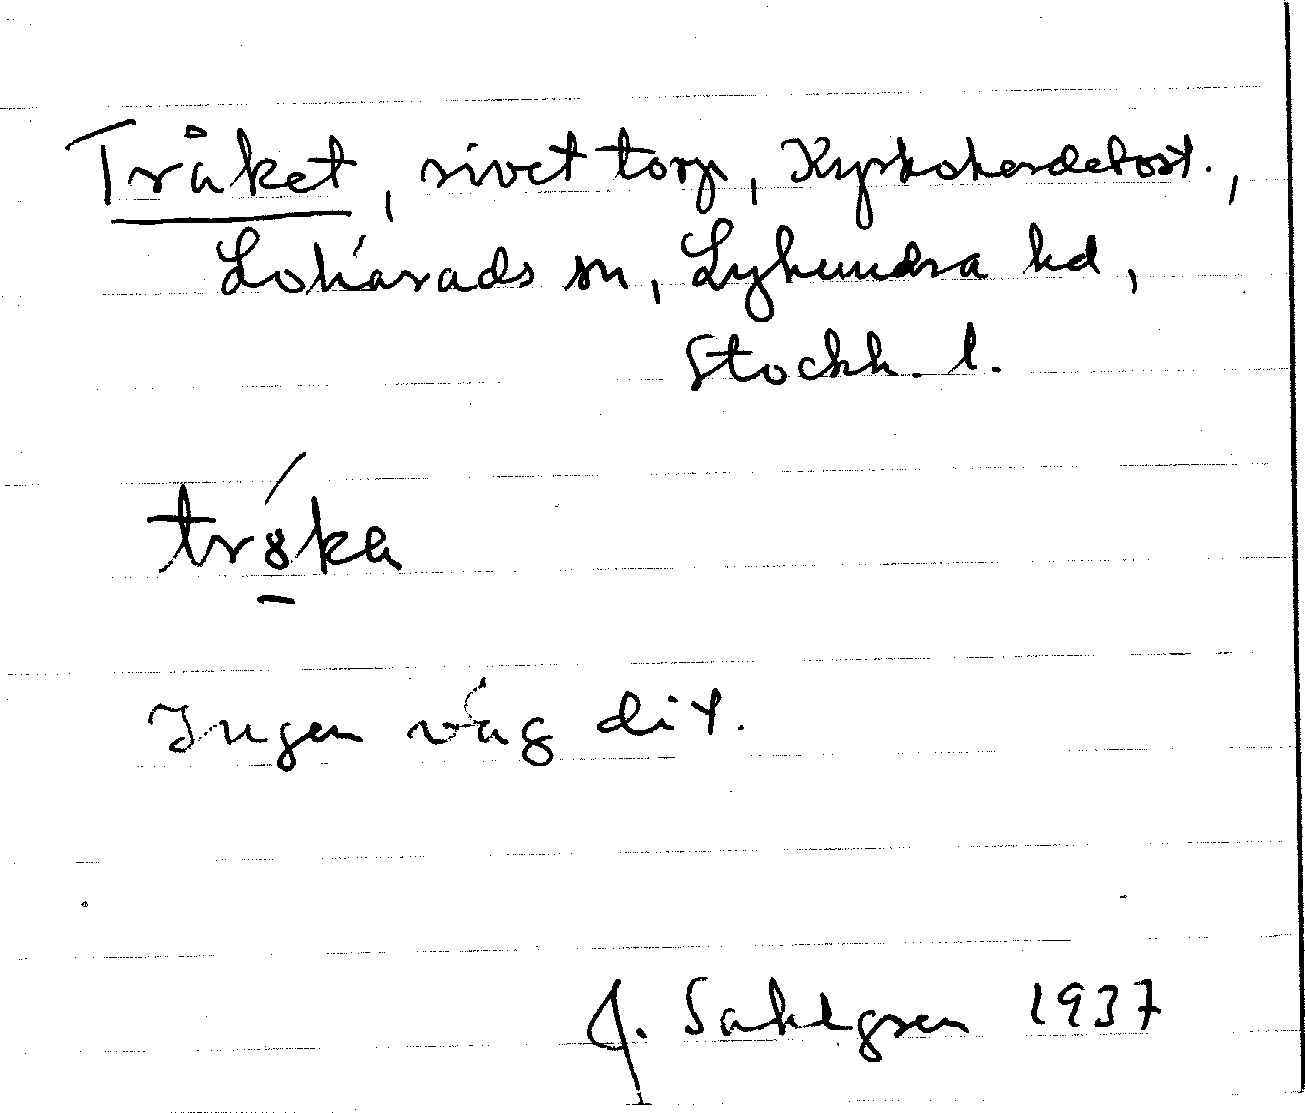 Tråket, rivet torp, Kyrkoherdebost.,
Lohärads sn, Lyhundra hd,
Stockh. l.
Ingen väg dit.
J. Sahlgren 1937